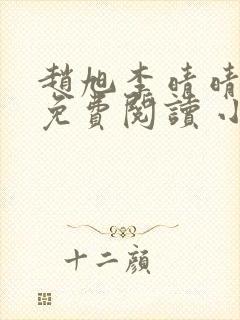 趙旭李晴晴
免費閱讀小
十二顏